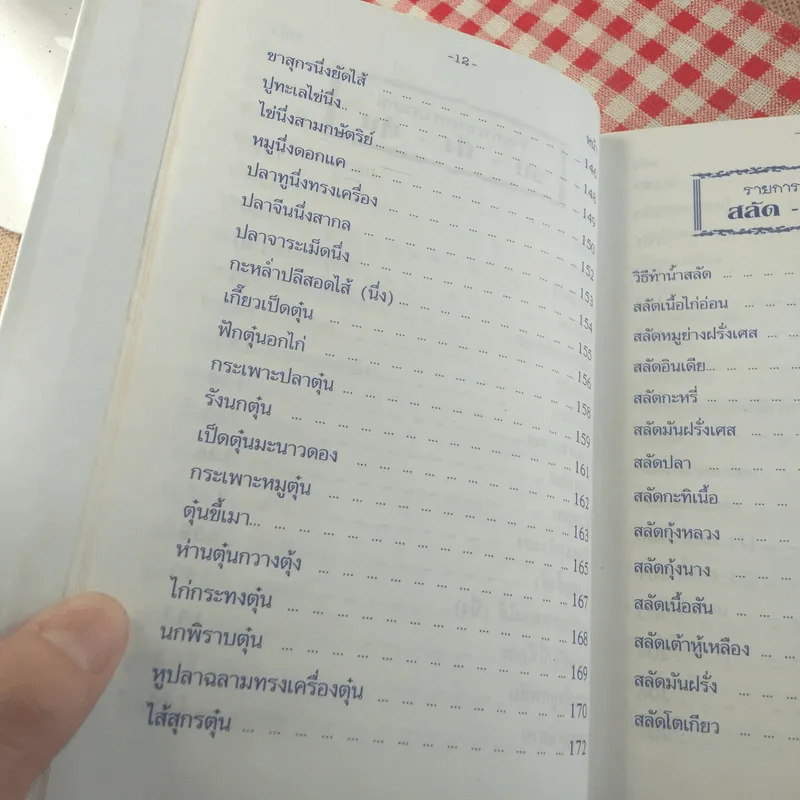 -12-
หน้า
ขาสุกรนึ่งยัดไส้ ... ... ... ... ... ... ... 146
ปูทะเลไข่นึ่ง... ... ... ... ... ... ... ... 148
ไข่นึ่งสามกษัตริย์... ... ... ... ... ... ... 149
หมูนึ่งดอกแค ... ... ... ... ... ... ... 150
ปลาทูนึ่งทรงเครื่อง ... ... ... ... ... ... 152
ปลาจีนนึ่งสากล ... ... ... ... ... ... ... 153
ปลาจาระเม็ดนึ่ง ... ... ... ... ... ... ... 154
กะหล่ำปลีสอดไส้ (นึ่ง) ... ... ... ... ... ... 155
เกี๊ยวเป็ดตุ๋น ... ... ... ... ... ... ... 156
ฟักตุ๋นอกไก่ ... ... ... ... ... ... ... 158
กระเพาะปลาตุ๋น ... ... ... ... ... ... ... 159
รังนกตุ๋น ... ... ... ... ... ... ... ... 161
เป็ดตุ๋นมะนาวดอง ... ... ... ... ... ... 162
กระเพาะหมูตุ๋น ... ... ... ... ... ... ... 163
ตุ๋นขี้เมา... ... ... ... ... ... ... ... 165
ห่านตุ๋นกวางตุ้ง ... ... ... ... ... ... ... 167
ไก่กระทงตุ๋น ... ... ... ... ... ... ... 168
นกพิราบตุ๋น ... ... ... ... ... ... ... 169
หูปลาฉลามทรงเครื่องตุ๋น ... ... ... ... ... 170
ไส้สุกรตุ๋น ... ... ... ... ... ... ... ... 172
รายการ
สลัด -
วิธีทำน้ำสลัด ... ... ...
สลัดเนื้อไก่อ่อน ... ... ...
สลัดหมูย่างฝรั่งเศส ...
สลัดอินเดีย... ... ... ...
สลัดกะหรี่ ... ... ... ...
สลัดมันฝรั่งเศส ... ...
สลัดปลา ... ... ... ...
สลัดกะทิเนื้อ ... ... ...
สลัดกุ้งหลวง ... ... ...
สลัดกุ้งนาง ... ... ...
สลัดเนื้อสัน ... ... ...
สลัดเต้าหู้เหลือง ... ...
สลัดมันฝรั่ง ... ... ...
สลัดโตเกียว ... ... ...